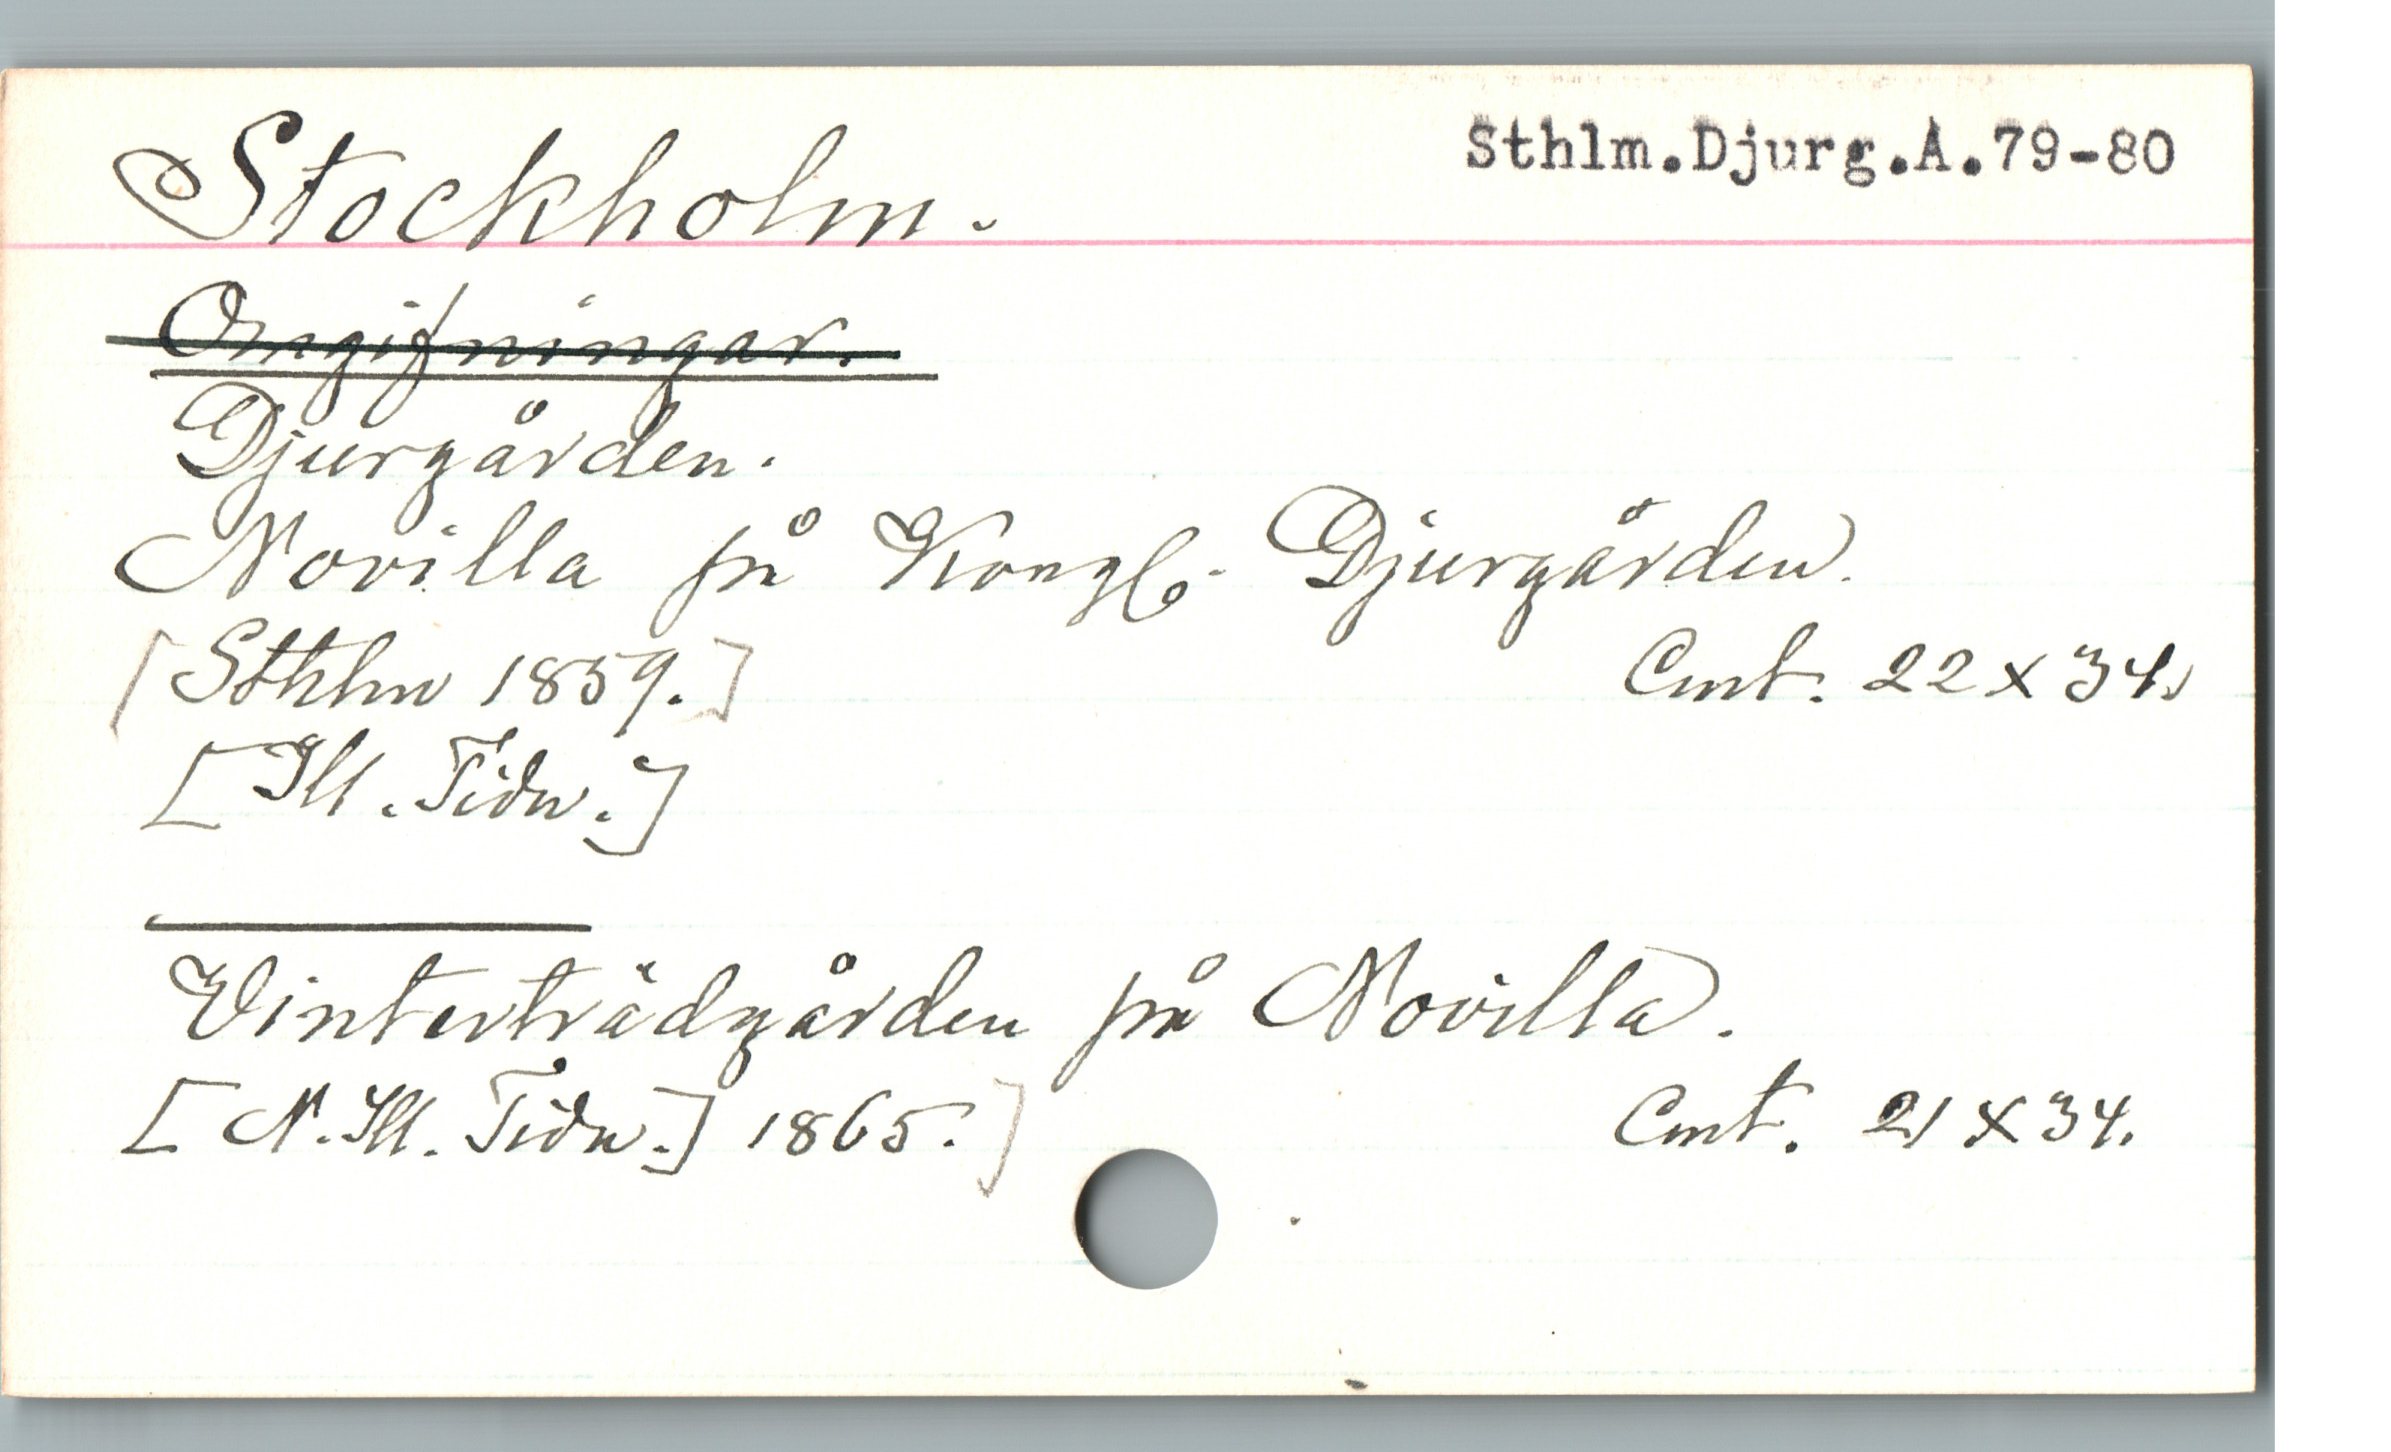 Stockholm.
Sthlm.Djurg.A.79-80
Omgifningar.
Djurgården.
Novilla på Kongl. Djurgården.
[Sthlm 1859.]
Cmt. 22 x 34.
[Ill. Tidn.]
Vinterträdgården på Novilla.
[N. Ill. Tidn.] 1865.]
Cmt. 21 x 34.